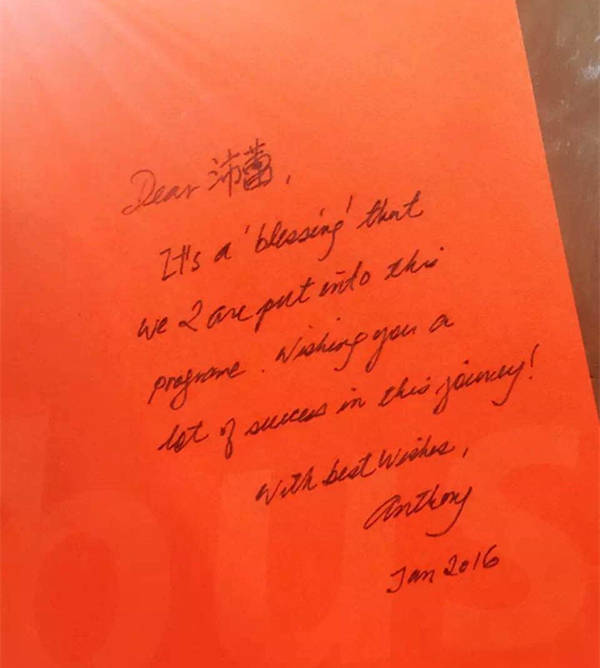 Dear 沛蕾,
It's a 'blessing' that
we 2 are put into this
programe. Wishing you a
lot of success in this journey!
With best Wishes,
Anthony
Jan 2016
bus